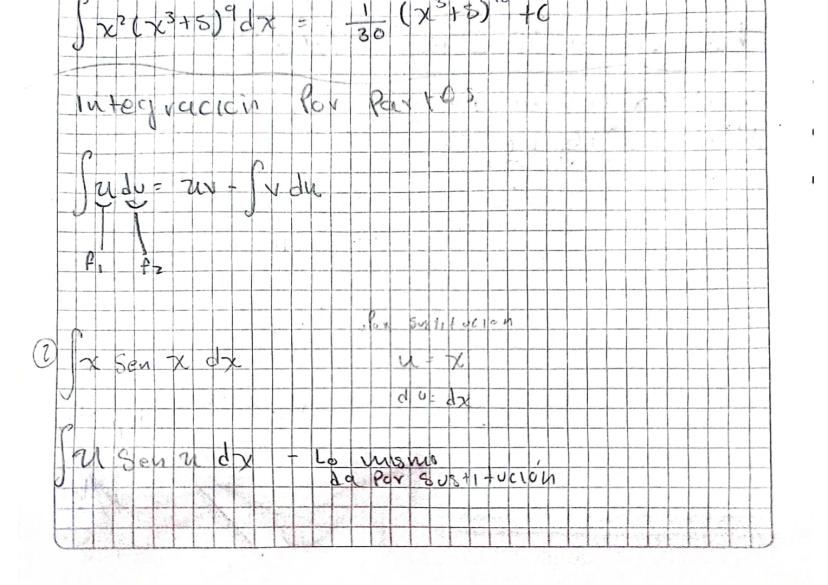 ∫ x² (x³+5)⁹ dx = 1/30 (x³+5)¹⁰ + C
Integración Por Partes.
∫ u dv = uv - ∫ v du
f₁ f₂
Por sustitución
② ∫ x Sen x dx
u = x
du = dx
∫ u Sen u dx - Lo mismo
da Por Sustitución